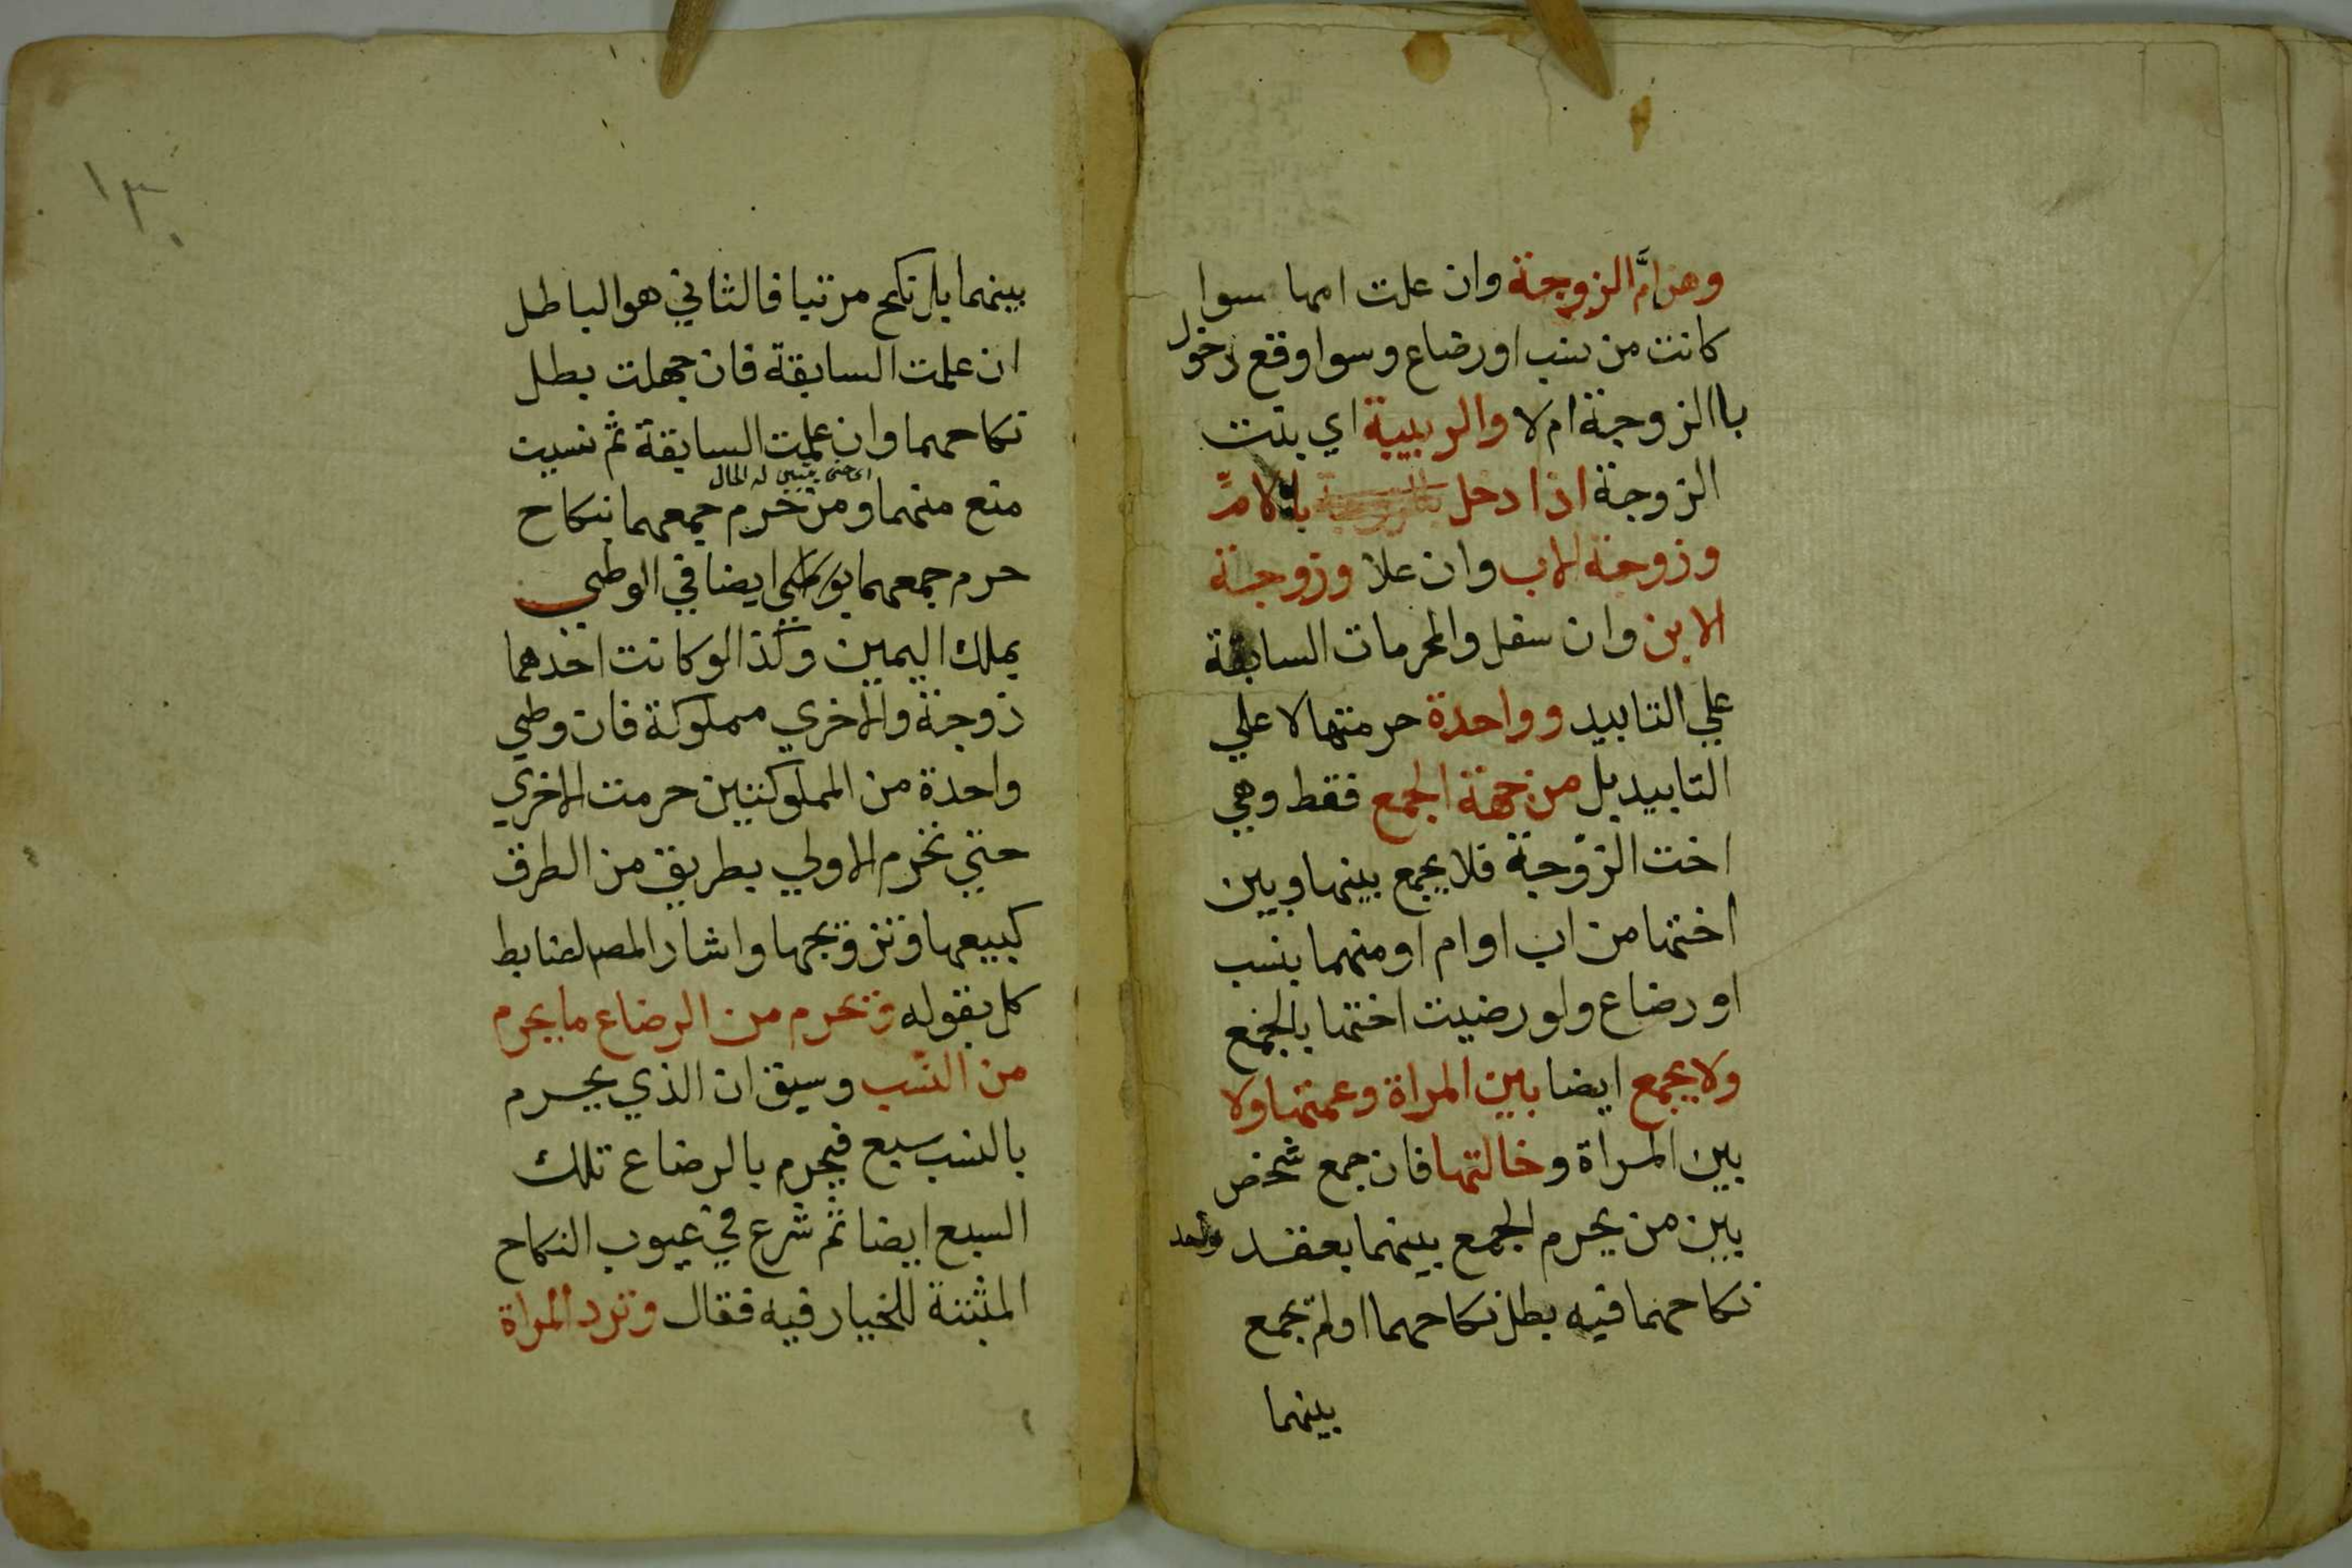 وهن ام الزوجة وان علت امها سوا
كانت من نسب او رضاع وسوا وقع دخول
باالزوجة ام لا والربيبة اي بنت
الزوجة اذا دخل بالام
وزوجة الاب وان علا وزوجة
الابن وان سفل والمحرمات السابقة
علي التابيد وواحدة حرمتها لا علي
التابيد بل من جهة الجمع فقط وهي
اخت الزوجة فلا يجمع بينها وبين
اختها من اب او ام او منهما بنسب
او رضاع ولو رضيت اختها بالجمع
ولا يجمع ايضا بين المراة وعمتها ولا
بين المراة وخالتها فان جمع شخص
بين من يحرم الجمع بينهما بعقد واحد
نكاحهما فيه بطل نكاحهما او لم يجمع
بينهما
١٣
بينهما بل نكح مرتبا فالثاني هو الباطل
ان علمت السابقة فان جهلت بطل
نكاحهما وان علمت السابقة ثم نسيت
اي حتى يتبين له الحال
منع منهما ومن حرم جمعهما بنكاح
حرم جمعهما بوطي ايضا في الوطي
بملك اليمين وكذا لو كانت احدهما
زوجة والاخري مملوكة فان وطي
واحدة من المملوكتين حرمت الاخري
حتي تحرم الاولي بطريق من الطرق
كبيعها وتزويجها واشار المصـ لضابط
كل بقوله وتحرم من الرضاع ما يحرم
من النسب وسبق ان الذي يحرم
بالنسب سبع فيحرم بالرضاع تلك
السبع ايضا ثم شرع في عيوب النكاح
المثبتة للخيار فيه فقال وترد المراة